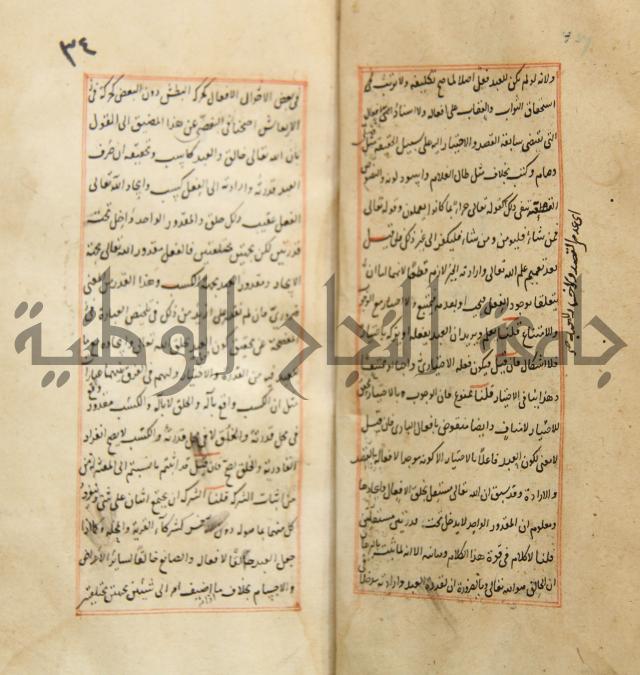 ولانه لو لم يكن للعبد فعل اصلا لما صح تكليفه ولا ترتب
استحقاق الثواب والعقاب على افعاله ولا اسناد الافعال
التى تقتضى سابقة القصد والاختيار اليه على سبيل الحقيقة مثل
وصام وكتب بخلاف مثل طال الغلام واسود لونه والنصوص
القطعية تنفى ذلك كقوله تعالى جزاء بما كانوا يعملون وقوله تعالى
فمن شاء فليؤمن ومن شاء فليكفر الى غير ذلك فان قيل
بعد تعميم علم الله تعالى وارادته الجبر لازم قطعا لانهما اما ان
يتعلقا بوجود الفعل فيجب او بعدمه فيمتنع ولا اختيار مع الوجوب
والامتناع قلنا يعلم ويريد ان العبد يفعله او يتركه باختياره
فلا اشكال فان قيل فيكون فعله الاختيارى واجبا او ممتنعا
وهذا ينافى الاختيار قلنا ممنوع فان الوجوب بالاختيار محقق
للاختيار لا مناف وايضا منقوض بافعال البارى فان قيل
لا معنى لكون العبد فاعلا بالاختيار الا كونه موجدا لافعاله بالقصد
والارادة وقد سبق ان الله تعالى مستقل بخلق الافعال وايجادها
ومعلوم ان المقدور الواحد لا يدخل تحت قدرتين مستقلتين
قلنا لا كلام فى قوة هذا الكلام ومتانته الا انه لما ثبت بالبرهان
ان الخالق هو الله تعالى وبالضرورة ان لقدرة العبد وارادته مدخلا
٣٤
فى بعض الافعال كحركة البطش دون البعض كحركة
الارتعاش احتجنا فى التفصى عن هذا المضيق الى القول
بان الله تعالى خالق والعبد كاسب وتحقيقه ان صرف
العبد قدرته وارادته الى الفعل كسب وايجاد الله تعالى
الفعل عقيب ذلك خلق والمقدور الواحد داخل تحت
قدرتين لكن بجهتين مختلفتين فالفعل مقدور الله تعالى بجهة
الايجاد ومقدور العبد بجهة الكسب وهذا القدر من المعنى
ضرورى وان لم نقدر على ازيد من ذلك فى تلخيص العبارة
المفصحة عن تحقيق كون فعل العبد بخلق الله تعالى وايجاده مع ما
للعبد فيه من القدرة والاختيار ولهم فى الفرق بينهما عبارات
مثل ان الكسب واقع بآلة والخلق لا بآلة والكسب مقدور
فى محل قدرته والخلق لا فى محل قدرته والكسب لا يصح انفراد
القادر به والخلق يصح فان قيل فقد اثبتم ما نسبتم الى المعتزلة
من اثبات الشركة قلنا الشركة ان يجتمع اثنان على شئ وينفرد
كل منهما بما هو له دون الآخر كشركاء القرية والمحلة وكما اذا
جعل العبد خالقا لافعاله والصانع خالقا لسائر الاعراض
والاجسام بخلاف ما اذا اضيف امر الى شيئين بجهتين مختلفتين
جامعة النجاح الوطنية